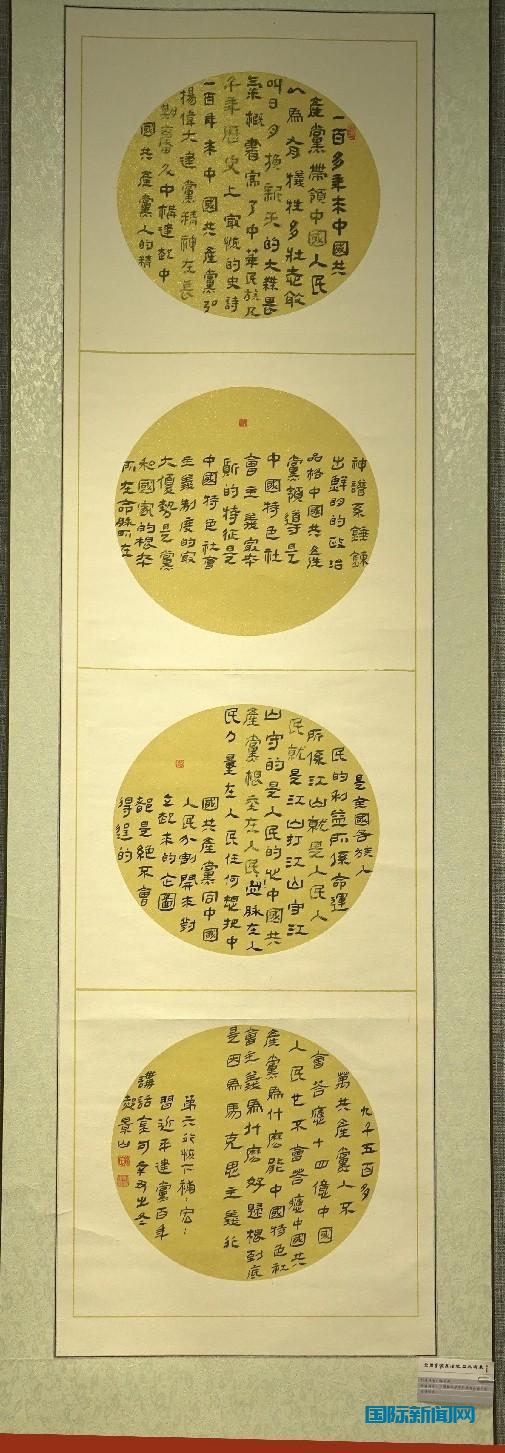 一百多年来中國共
產黨帶領中國人民
以為有犧牲多壯志敢
叫日月換新天的大無畏
氣概書寫了中華民族几
千年歷史上最恢的史詩
一百年来中國共產黨弘
揚偉大建黨精神在長
期奮鬥中構建起中
國共產黨人的精
神譜系錘鍊
出鮮明的政治
品格中國共產
黨領導是
中國特色社
會主義最本
質的特征是
中國特色社會
主義制度的最
大優勢是黨
和國家的根本
所在命脉所在
是全國各族人
民的利益所係命運
所係江山就是人民人
民就是江山打江山守江
山守的是人民的心中國共
產黨根基在人民血脉在人
民力量在人民任何想把中
國共產黨同中國
人民分割開来對
立起来的企圖
都是絕不會
得逞的
九千五百多
萬共產黨人不
會答應十四億中國
人民也不會答應中國共
產黨為什麽能中國特色社
會主義為什麽好歸根到底
是因為馬克思主義行
第六行恢下補宏
習近平建黨百年
講話金句辛丑之冬
景山
国际新闻网